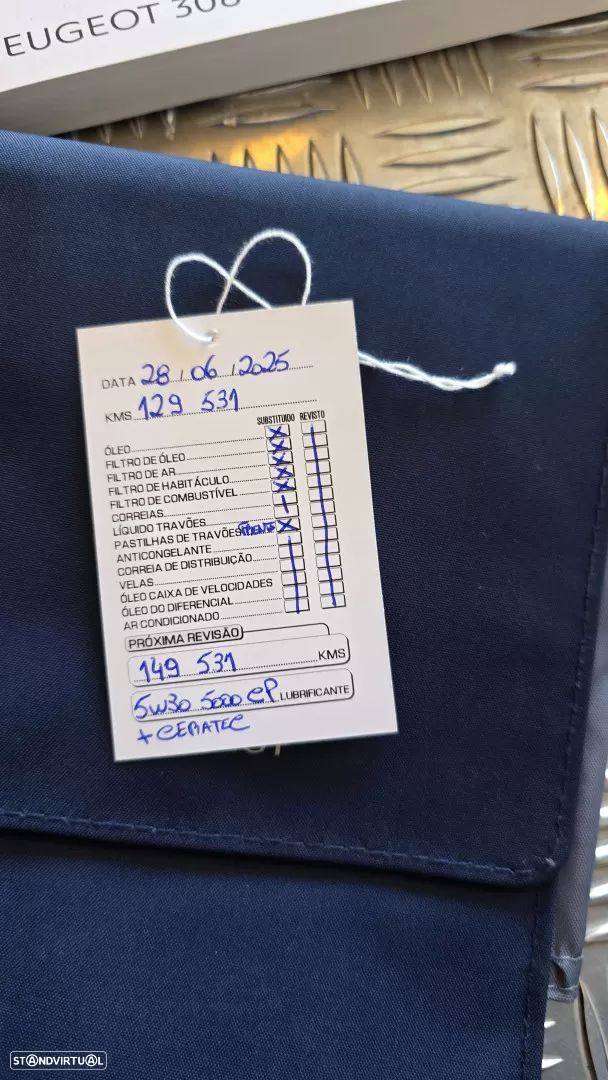 EUGEOT 308
DATA 28 / 06 / 2025
KMS 129 531
SUBSTITUIDO REVISTO
ÓLEO
FILTRO DE ÓLEO
FILTRO DE AR
FILTRO DE HABITÁCULO
FILTRO DE COMBUSTÍVEL
CORREIAS
LÍQUIDO TRAVÕES
PASTILHAS DE TRAVÕES
ANTICONGELANTE
CORREIA DE DISTRIBUIÇÃO
VELAS
ÓLEO CAIXA DE VELOCIDADES
ÓLEO DO DIFERENCIAL
AR CONDICIONADO
PRÓXIMA REVISÃO
149 531 KMS
5W30 5000 CP LUBRIFICANTE
+ CERATEC
STANDVIRTUAL